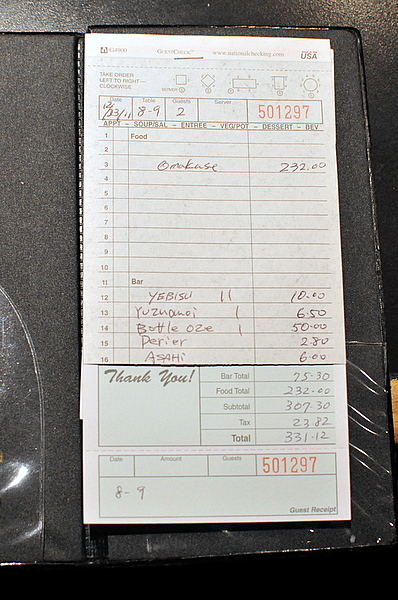 G4900 GUESTCHECK™ www.nationalchecking.com MADE IN USA
TAKE ORDER
LEFT TO RIGHT—
CLOCKWISE
Date Table Guests Server
12/23/11 8-9 2 501297
APPT - SOUP/SAL - ENTREE - VEG/POT - DESSERT - BEV
1 Food
2
3 Omakase 232.00
4
5
5
6
7
8
9
10
11 Bar
12 YEBISU 11 10.00
13 Yuzuhuoi 1 6.50
14 Bottle Oze 1 50.00
15 Perier 2.80
16 ASAHI 6.00
Thank You!
Bar Total 75.30
Food Total 232.00
Subtotal 307.30
Tax 23.82
Total 331.12
Date Amount Guests 501297
8-9
Guest Receipt